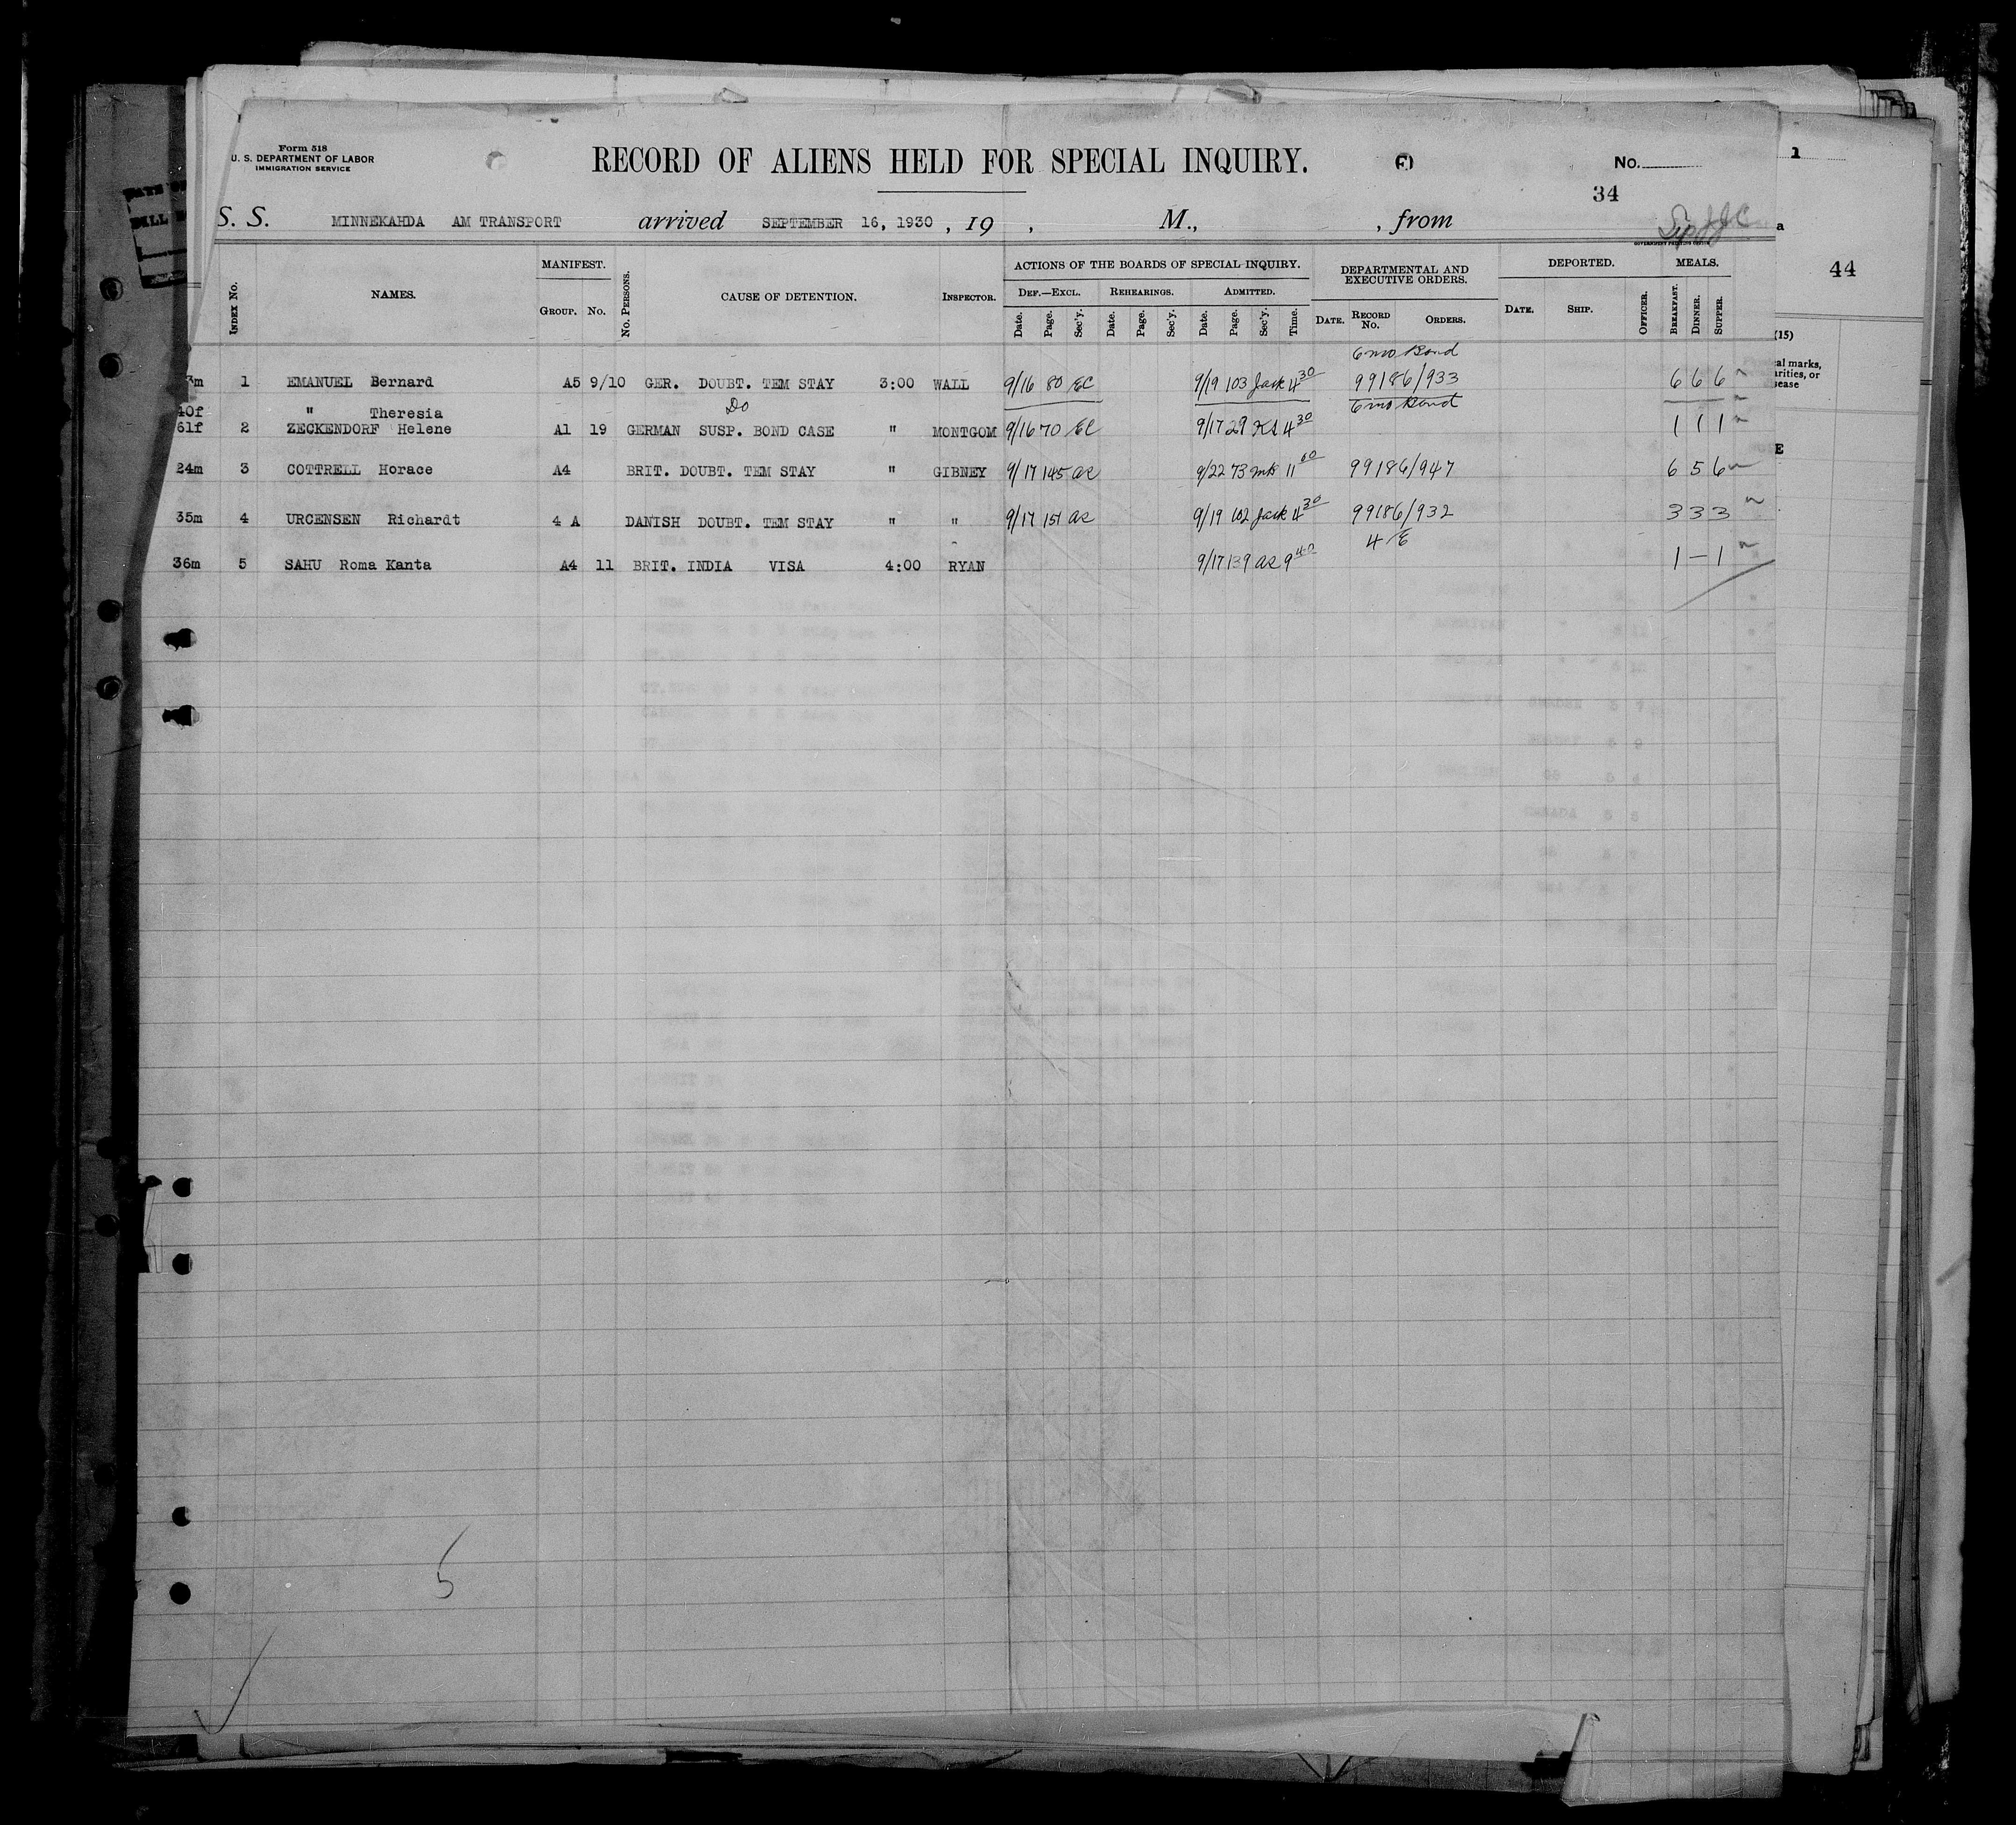 Form 518
U. S. DEPARTMENT OF LABOR
IMMIGRATION SERVICE
RECORD OF ALIENS HELD FOR SPECIAL INQUIRY.
No.
34
S. S. MINNEKAHDA AM TRANSPORT arrived SEPTEMBER 16, 1930, 19 , M., , from
GOVERNMENT PRINTING OFFICE
INDEX No. NAMES. MANIFEST. GROUP. No. No. PERSONS. CAUSE OF DETENTION. INSPECTOR. ACTIONS OF THE BOARDS OF SPECIAL INQUIRY. DEPARTMENTAL AND EXECUTIVE ORDERS. DEPORTED. MEALS.
DEF.—EXCL. REHEARINGS. ADMITTED.
Date. Page. Sec'y. Date. Page. Sec'y. Date. Page. Sec'y. Time. DATE. RECORD No. ORDERS. DATE. SHIP. OFFICER. BREAKFAST. DINNER. SUPPER.
6 mo Bond
3m 1 EMANUEL Bernard A5 9/10 GER. DOUBT. TEM STAY 3:00 WALL 9/16 80 EC 9/19 103 Jack 4 30 99186/933 6 6 6
Do 6 mo Bond
40f " Theresia
61f 2 ZECKENDORF Helene A1 19 GERMAN SUSP. BOND CASE " MONTGOM 9/16 70 EC 9/17 29 KS 4 30 1 1 1
24m 3 COTTRELL Horace A4 BRIT. DOUBT. TEM STAY " GIBNEY 9/17 145 as 9/22 73 11 00 99186/947 6 5 6
35m 4 URCENSEN Richardt 4 A DANISH DOUBT. TEM STAY " " 9/17 151 as 9/19 102 Jack 4 30 99186/932 3 3 3
36m 5 SAHU Roma Kanta A4 11 BRIT. INDIA VISA 4:00 RYAN 9/17 139 as 9 40 4 E 1 — 1
5
1
44
(15)